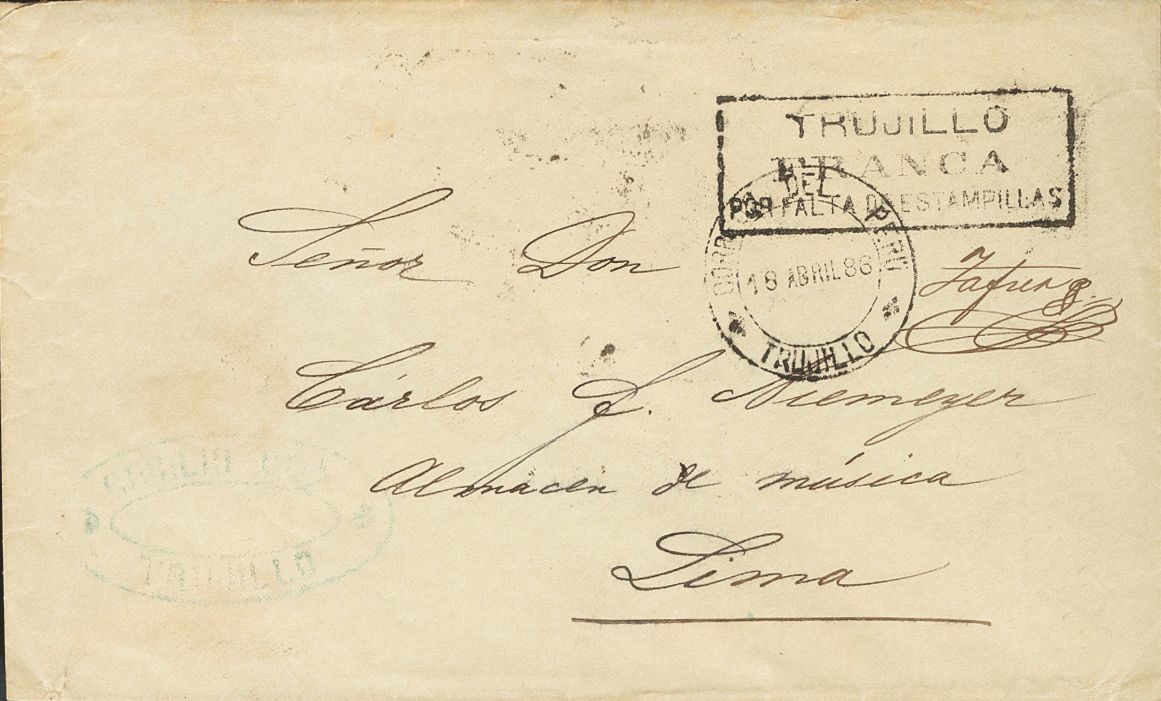 TRUJILLO
FRANCA
POR FALTA DE ESTAMPILLAS
CORREOS DEL PERU
18 ABRIL 86
TRUJILLO
Señor Don
Cárlos F. Niemeyer
Almacen de música
Lima
TRUJILLO